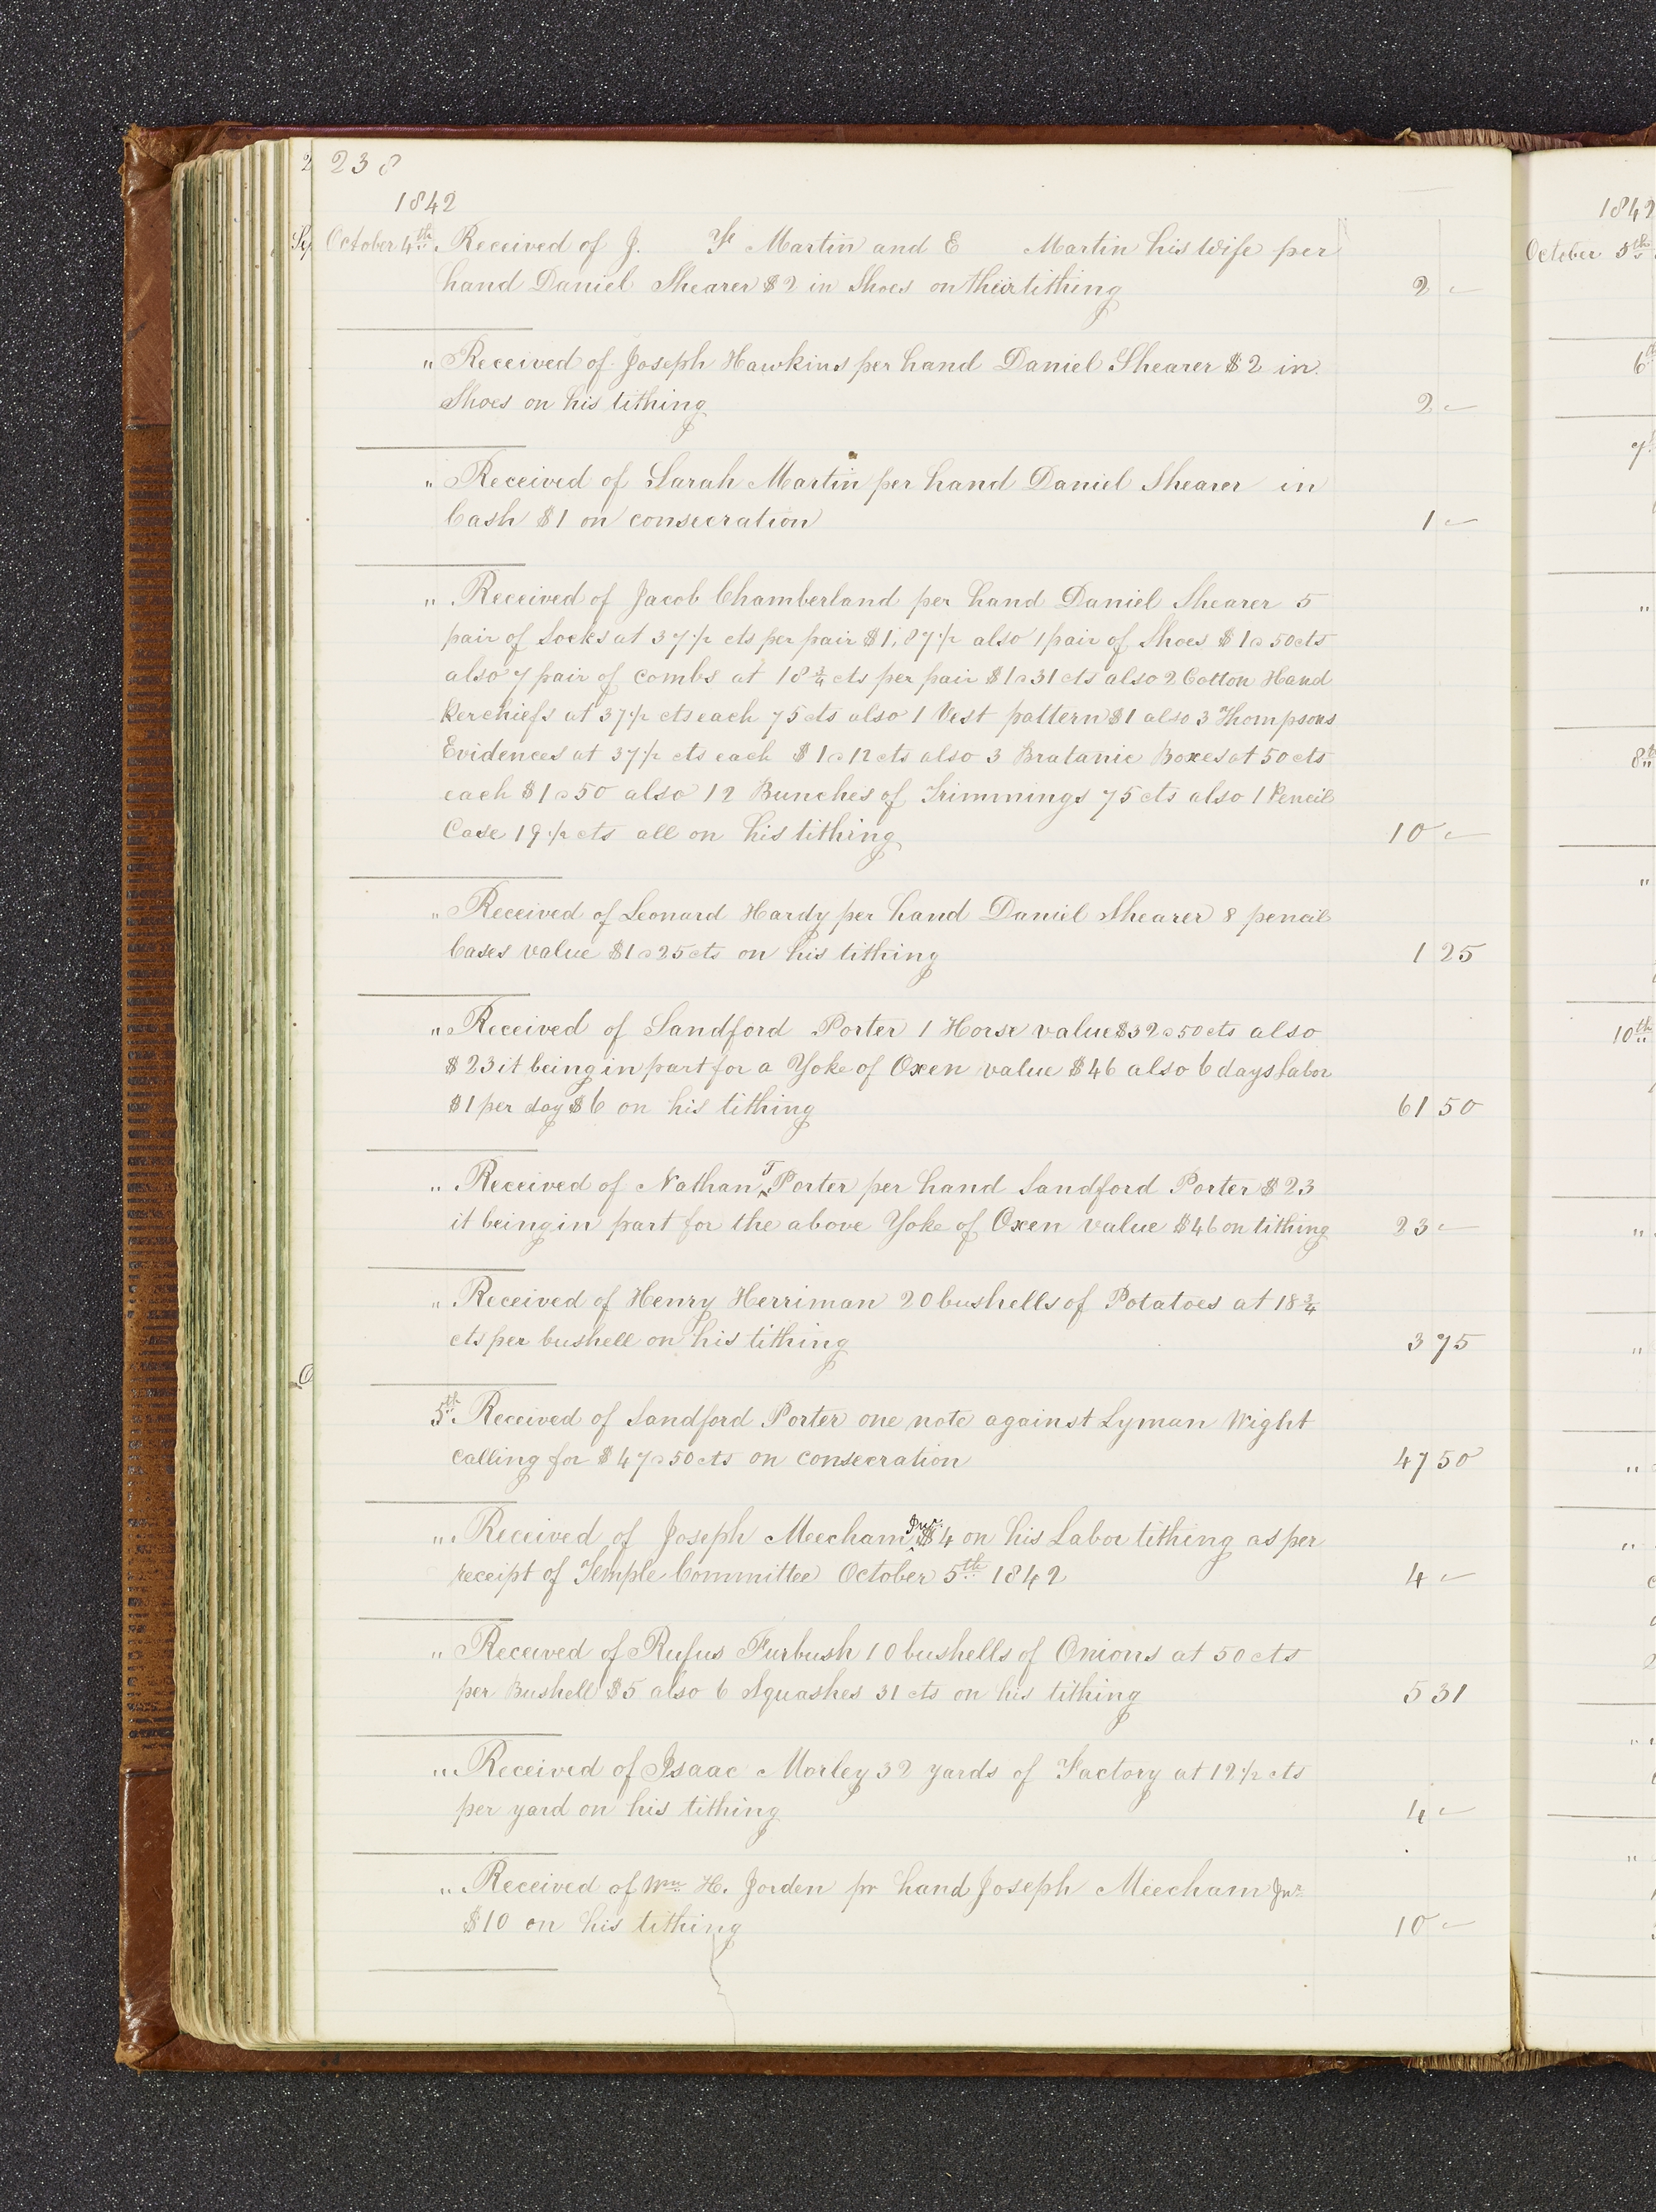 238
1842
October 4th Received of J. Martin and E Martin his Wife per
hand Daniel Shearer $2 in Shoes on their tithing 2 -
" Received of Joseph Hawkins per hand Daniel Shearer $2 in
Shoes on his tithing 2 -
" Received of Sarah Martin per hand Daniel Shearer in
Cash $1 on consecration 1 -
" Received of Jacob Chamberland per hand Daniel Shearer 5
pair of Socks at 37 1/2 cts per pair $1,87 1/2 also 1 pair of Shoes $1 „ 50 cts
also 7 pair of combs at 18 3/4 cts per pair $1 „ 31 cts also 2 Cotton Hand
kerchiefs at 37 1/2 cts each 75 cts also 1 Vest pattern $1 also 3 Thompsons
Evidences at 37 1/2 cts each $1 „ 12 cts also 3 Bratanic Boxes at 50 cts
each $1 „ 50 also 12 Bunches of Trimmings 75 cts also 1 Pencil
Case 19 1/2 cts all on his tithing 10 -
" Received of Leonard Hardy per hand Daniel Shearer 8 pencil
Cases value $1 „ 25 cts on his tithing 1 25
" Received of Sandford Porter 1 Horse value $32 „ 50 cts also
$23 it being in part for a Yoke of Oxen value $46 also 6 days Labor
$1 per day $6 on his tithing 61 50
" Received of Nathan T Porter per hand Sandford Porter $23
it being in part for the above Yoke of Oxen value $46 on tithing 23 -
" Received of Henry Herriman 20 bushells of Potatoes at 18 3/4
cts per bushell on his tithing 3 75
5th Received of Sandford Porter one note against Lyman Wight
calling for $47 „ 50 cts on consecration 47 50
" Received of Joseph Meecham Jnr. $4 on his Labor tithing as per
receipt of Temple Committee October 5th 1842 4 -
" Received of Rufus Furbush 10 bushells of Onions at 50 cts
per Bushell $5 also 6 Squashes 31 cts on his tithing 5 31
" Received of Isaac Morley 32 yards of Factory at 12 1/2 cts
per yard on his tithing 4 -
" Received of Wm H. Jorden pr hand Joseph Meecham Jnr
$10 on his tithing 10 -
1842
October 5th
6th
7th
"
8th
"
10th
"
"
"
"
"
"